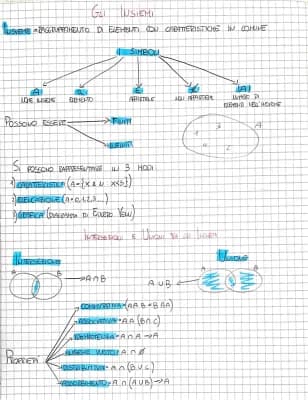 GLI INSIEMI
INSIEME = RAGGRUPPAMENTO DI ELEMENTI CON CARATTERISTICHE IN COMUNE
I SIMBOLI
A
a
|A|
NOME INSIEME
ELEMENTO
APPARTIENE
NON APPARTIENE
NUMERO DI
ELEMENTI NELL'INSIEME
POSSONO ESSERE
FINITI
INFINITI
A
SI POSSONO RAPPRESENTARE IN 3 MODI
1) CARATTERISTICA (A={X∈N X<5})
2) ELENCAZIONE (A=0,1,2,3...)
3) GRAFICA (DIAGRAMMA DI EULERO VENN)
INTERSEZIONI E UNIONI
INTERSEZIONE
UNIONE
A
B
A∩B
A∪B
A
B
PROPRIETÀ
COMMUTATIVA=(A∩B=B∩A)
ASSOCIATIVA=A∩(B∩C)
IDEMPOTENZA=A∩A→A
INSIEME VUOTO=A∩∅
DISTRIBUTIVA=A∩(B∪C)
ASSORBIMENTO=A∩(A∪B)→A